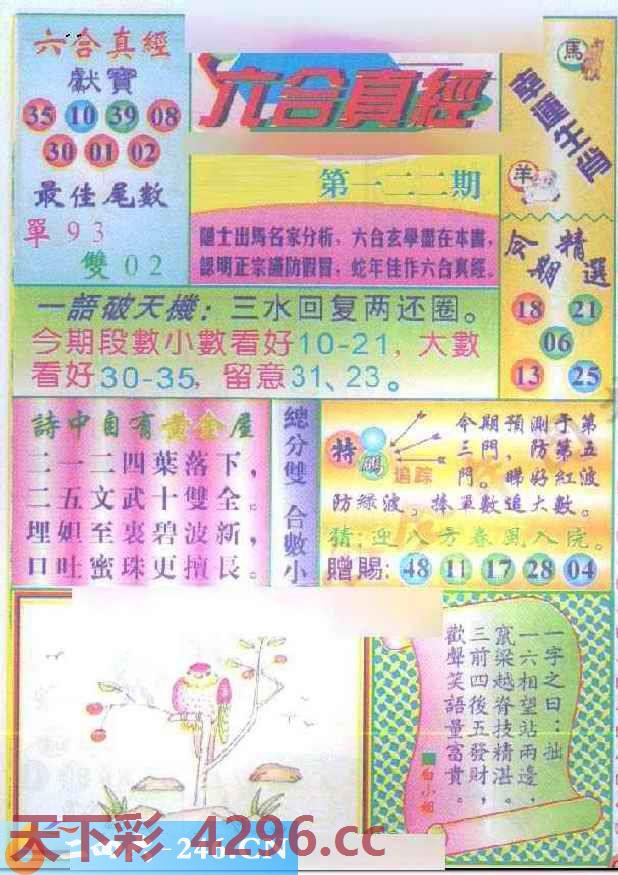 六合真經
獻寶
35 10 39 08
30 01 02
最佳尾數
單 9 3
雙 0 2
六合真經
第一二二期
隱士出馬名家分析，六合玄學盡在本書，
認明正宗謹防假冒，蛇年佳作六合真經。
馬
幸運生肖
羊
今期精選
18 21
06
13 25
一語破天機：三水回复两还圈。
今期段數小數看好10-21，大數
看好30-35，留意31、23。
詩中自有黃金屋
二一二四葉落下，
二五文武十雙全。
埋妲至裏碧波新，
口吐蜜珠更擅長。
總分雙 合數小
特碼
追踪
今期預測于第
三門，防第五
門。睇好紅波
防綠波，捧單數追大數。
猜：迎八方春風入院。
贈賜：48 11 17 28 04
一字之曰：拙
一六相望站兩邊，
竄梁越脊技精湛。
三前四後五發財，
歡聲笑語量富貴。
白小姐
天下彩 4296.cc
246.CN